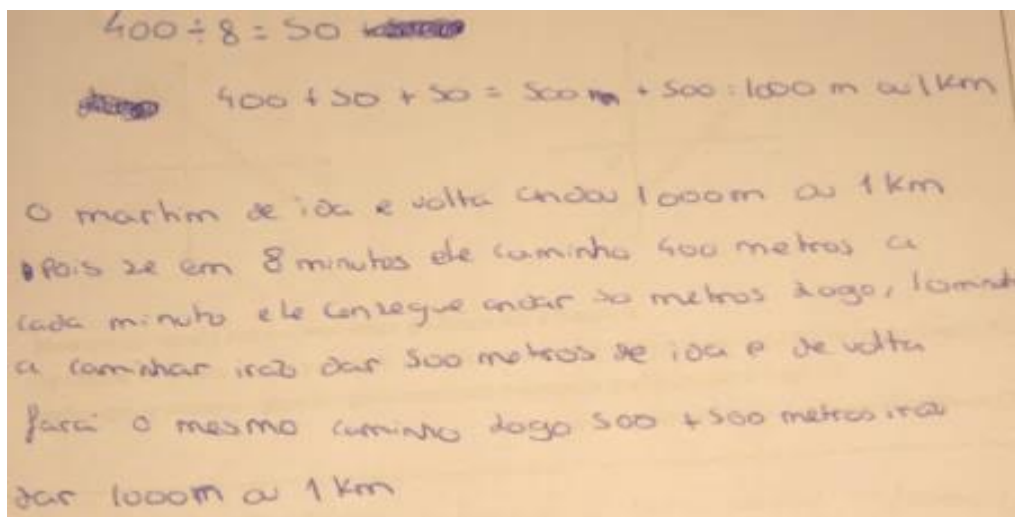 400 ÷ 8 = 50
400 + 50 + 50 = 500m + 500 = 1000 m ou 1 Km
O martim de ida e volta andou 1000m ou 1 Km
pois se em 8 minutos ele caminha 400 metros a
cada minuto ele consegue andar 50 metros logo, 10minutos
a caminhar irão dar 500 metros de ida e de volta
fará o mesmo caminho logo 500 + 500 metros irão
dar 1000m ou 1 Km